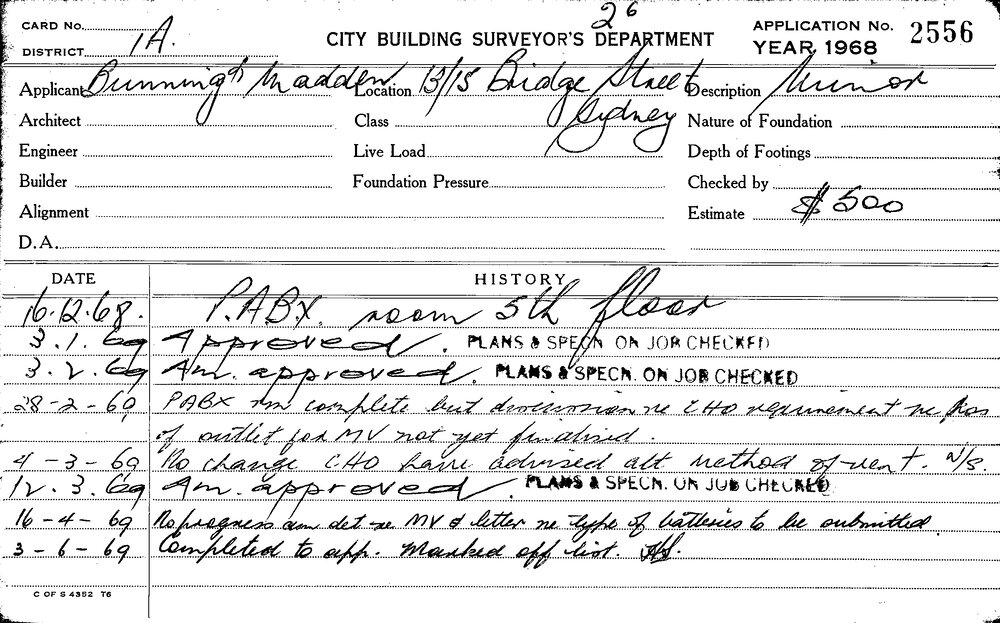 26
CARD No. APPLICATION No. 2556
DISTRICT 1A. CITY BUILDING SURVEYOR'S DEPARTMENT YEAR 1968
Applicant Bunning & Madden Location 13/15 Bridge Street Description Minor
Architect Class Sydney Nature of Foundation
Engineer Live Load Depth of Footings
Builder Foundation Pressure Checked by
Alignment Estimate $500
D.A.
DATE HISTORY
16.12.68. P.ABX. room 5th floor
3.1.69 Approved. PLANS & SPECN. ON JOB CHECKED
3.2.69 Am. approved. PLANS & SPECN. ON JOB CHECKED
28-2-69 PABX rm complete but discussion re CHO requirement re pos
of outlet for MV not yet finalised.
4-3-69 No change CHO have advised alt method of vent. N/S.
12.3.69 Am. approved. PLANS & SPECN. ON JOB CHECKED
16-4-69 No progress am det re MV & letter re type of batteries to be submitted
3-6-69 Completed to app. Marked off list.
C OF S 4352 T6